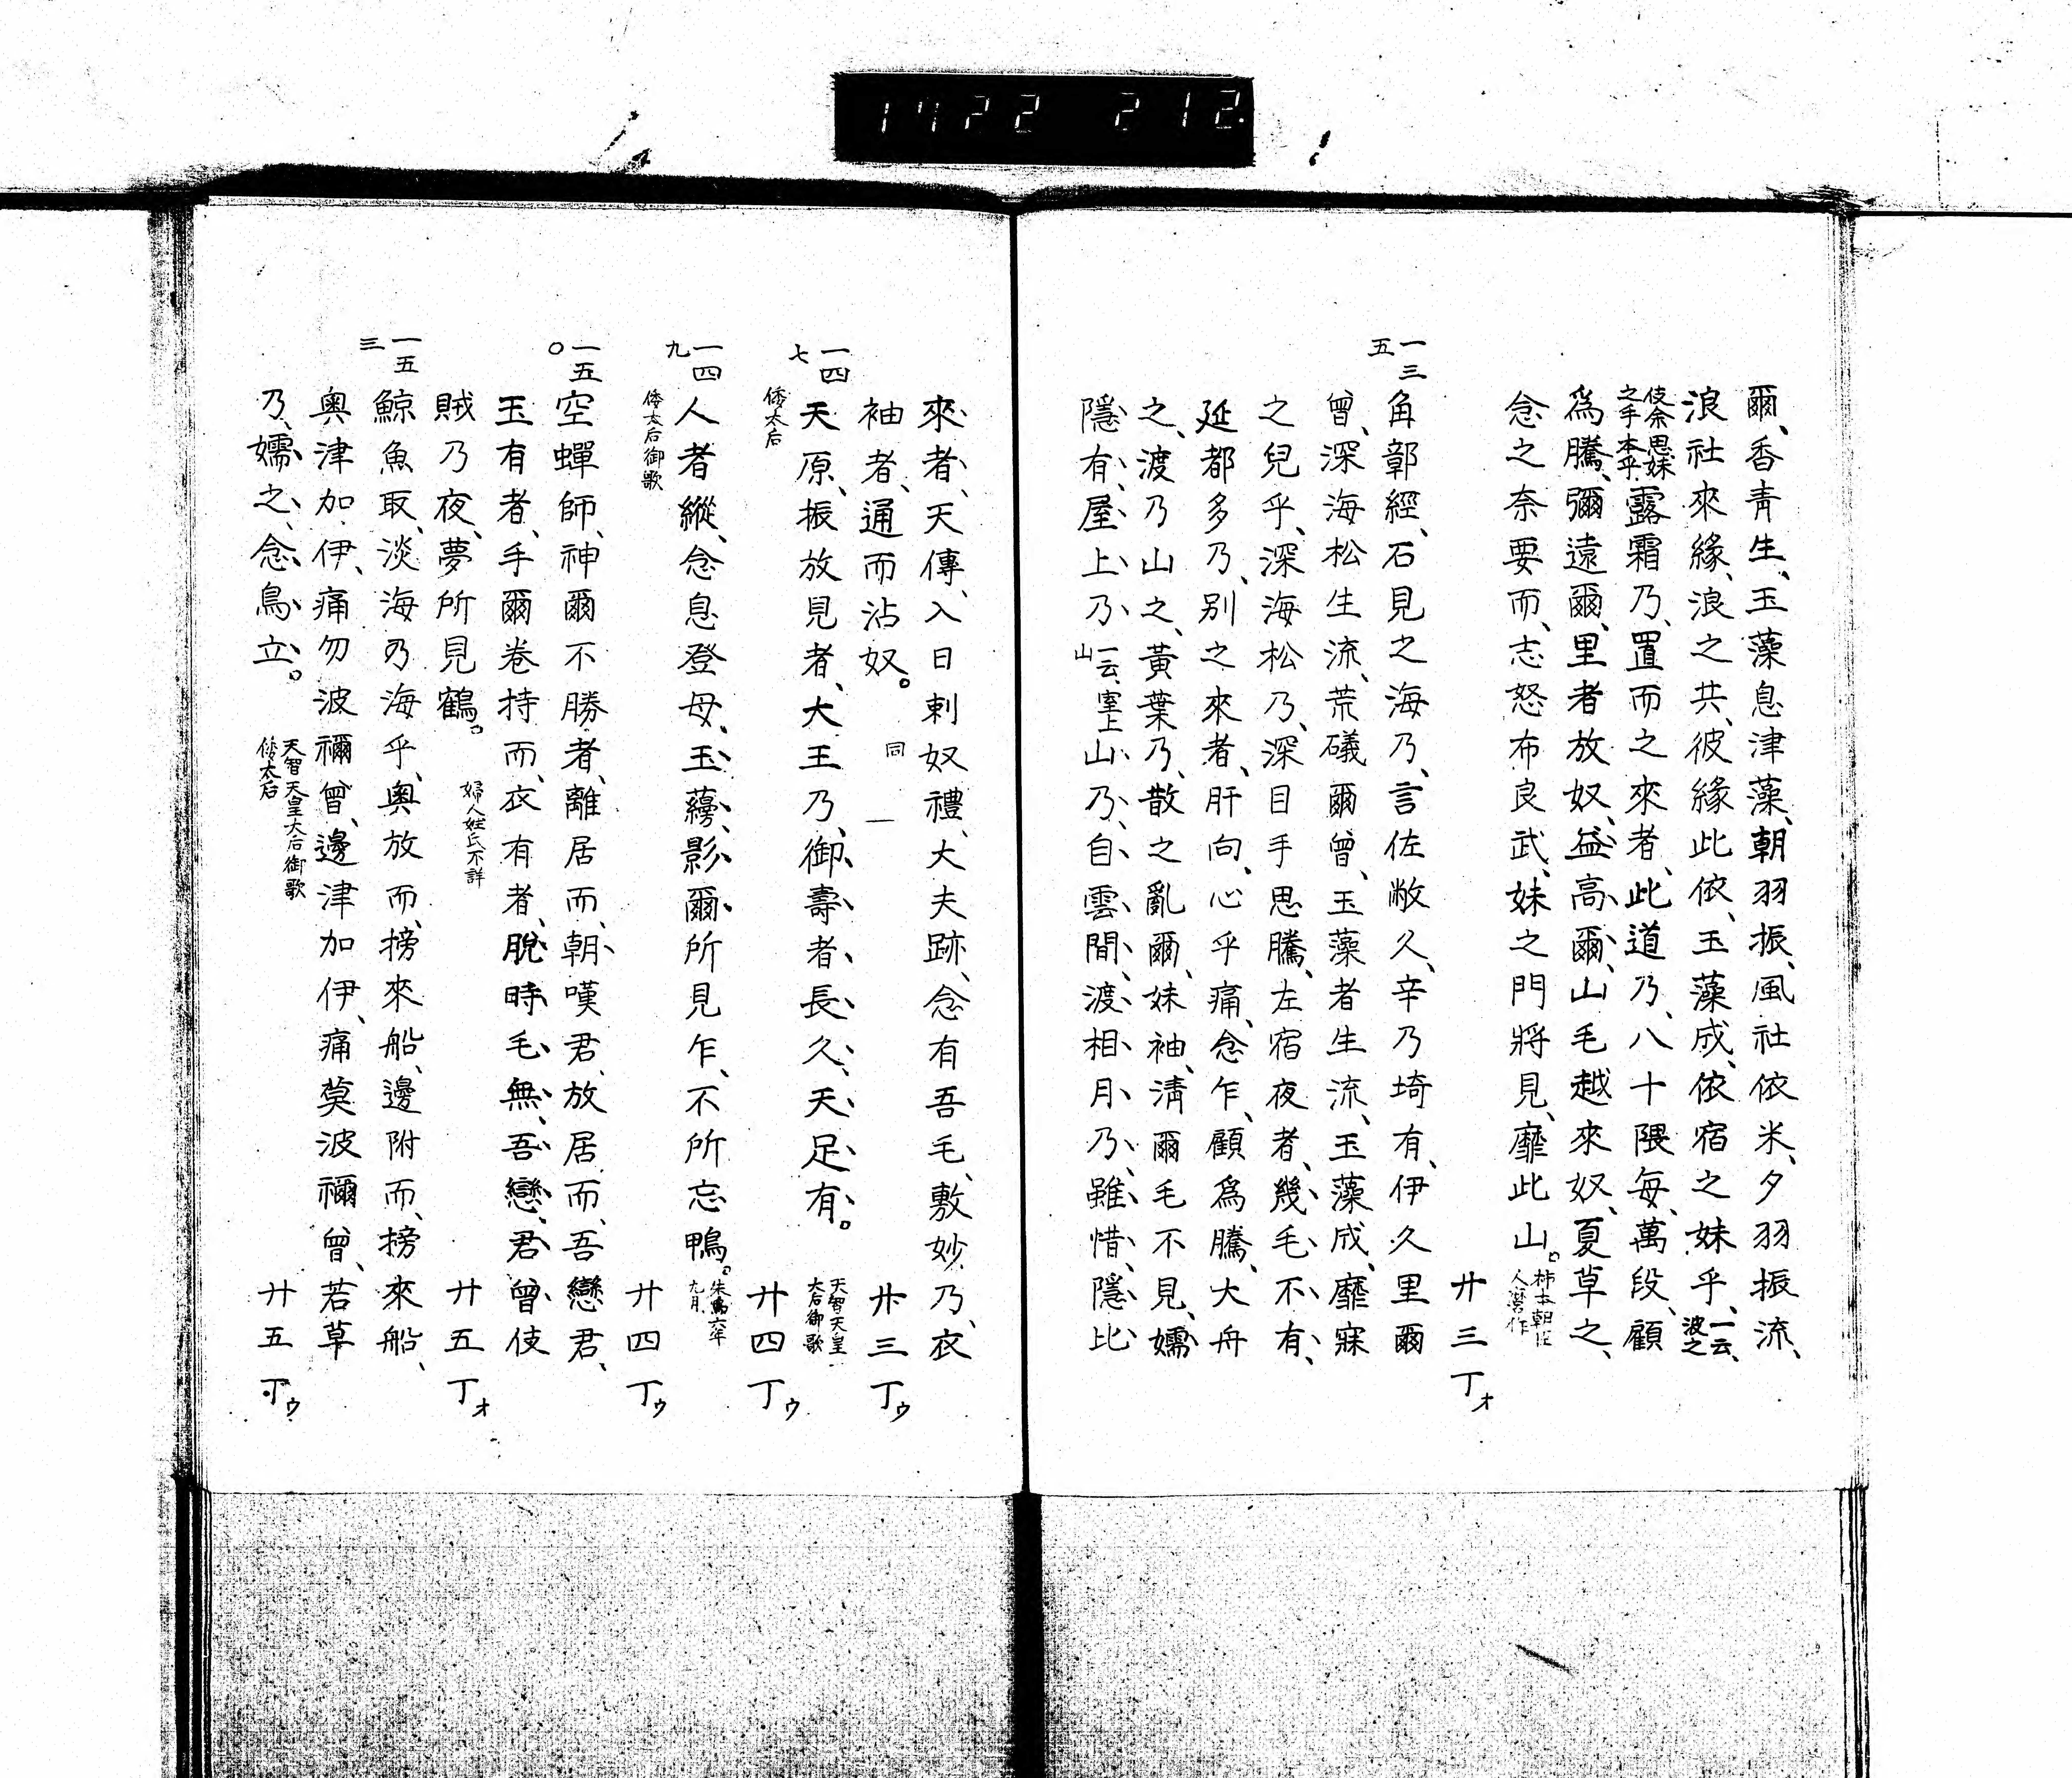 1722 212.
爾、香青生、玉藻息津藻、朝羽振、風社依米、夕羽振流、
浪社來緣、浪之共、彼緣此依、玉藻成、依宿之妹乎、一云、波之
伎余思妹之手本乎、露霜乃、置而之來者、此道乃、八十隈每、萬段、顧
爲騰、彌遠爾、里者放奴、益高爾、山毛越來奴、夏草之、
念之奈要而、志怒布良武、妹之門將見、靡此山。柿本朝臣人麿作
廿三丁オ
一三五
角鄣經、石見之海乃、言佐敝久、辛乃埼有、伊久里爾
曾、深海松生流、荒礒爾曾、玉藻者生流、玉藻成、靡寐
之兒乎、深海松乃、深目手思騰、左宿夜者、幾毛不有、
延都多乃、別之來者、肝向、心乎痛、念乍、顧爲騰、大舟
之、渡乃山之、黃葉乃、散之亂爾、妹袖、清爾毛不見、嬬
隱有、屋上乃一云、室上山山乃、自雲間、渡相月乃、雖惜、隱比
來者、天傳、入日刺奴禮、大夫跡、念有吾毛、敷妙乃、衣
袖者、通而沾奴。 同 一 廿三丁ウ
一四七
天原、振放見者、大王乃、御壽者長久、天足有。天智天皇大后御歌
倭太后 廿四丁ウ
一四九
人者縱、念息登母、玉蘰、影爾所見乍、不所忘鴨。朱鳥六年九月
倭太后御歌 廿四丁ウ
一五〇
空蟬師、神爾不勝者、離居而、朝嘆君、放居而、吾戀君、
玉有者、手爾卷持而、衣有者、脫時毛無、吾戀、君曾伎
賊乃夜、夢所見鶴。 婦人姓氏不詳 廿五丁オ
一五三
鯨魚取、淡海乃海乎、奥放而、榜來船、邊附而、榜來船、
奥津加伊、痛勿波禰曾、邊津加伊、痛莫波禰曾、若草
乃、嬬之、念鳥立。 天智天皇大后御歌 倭太后 廿五丁ウ